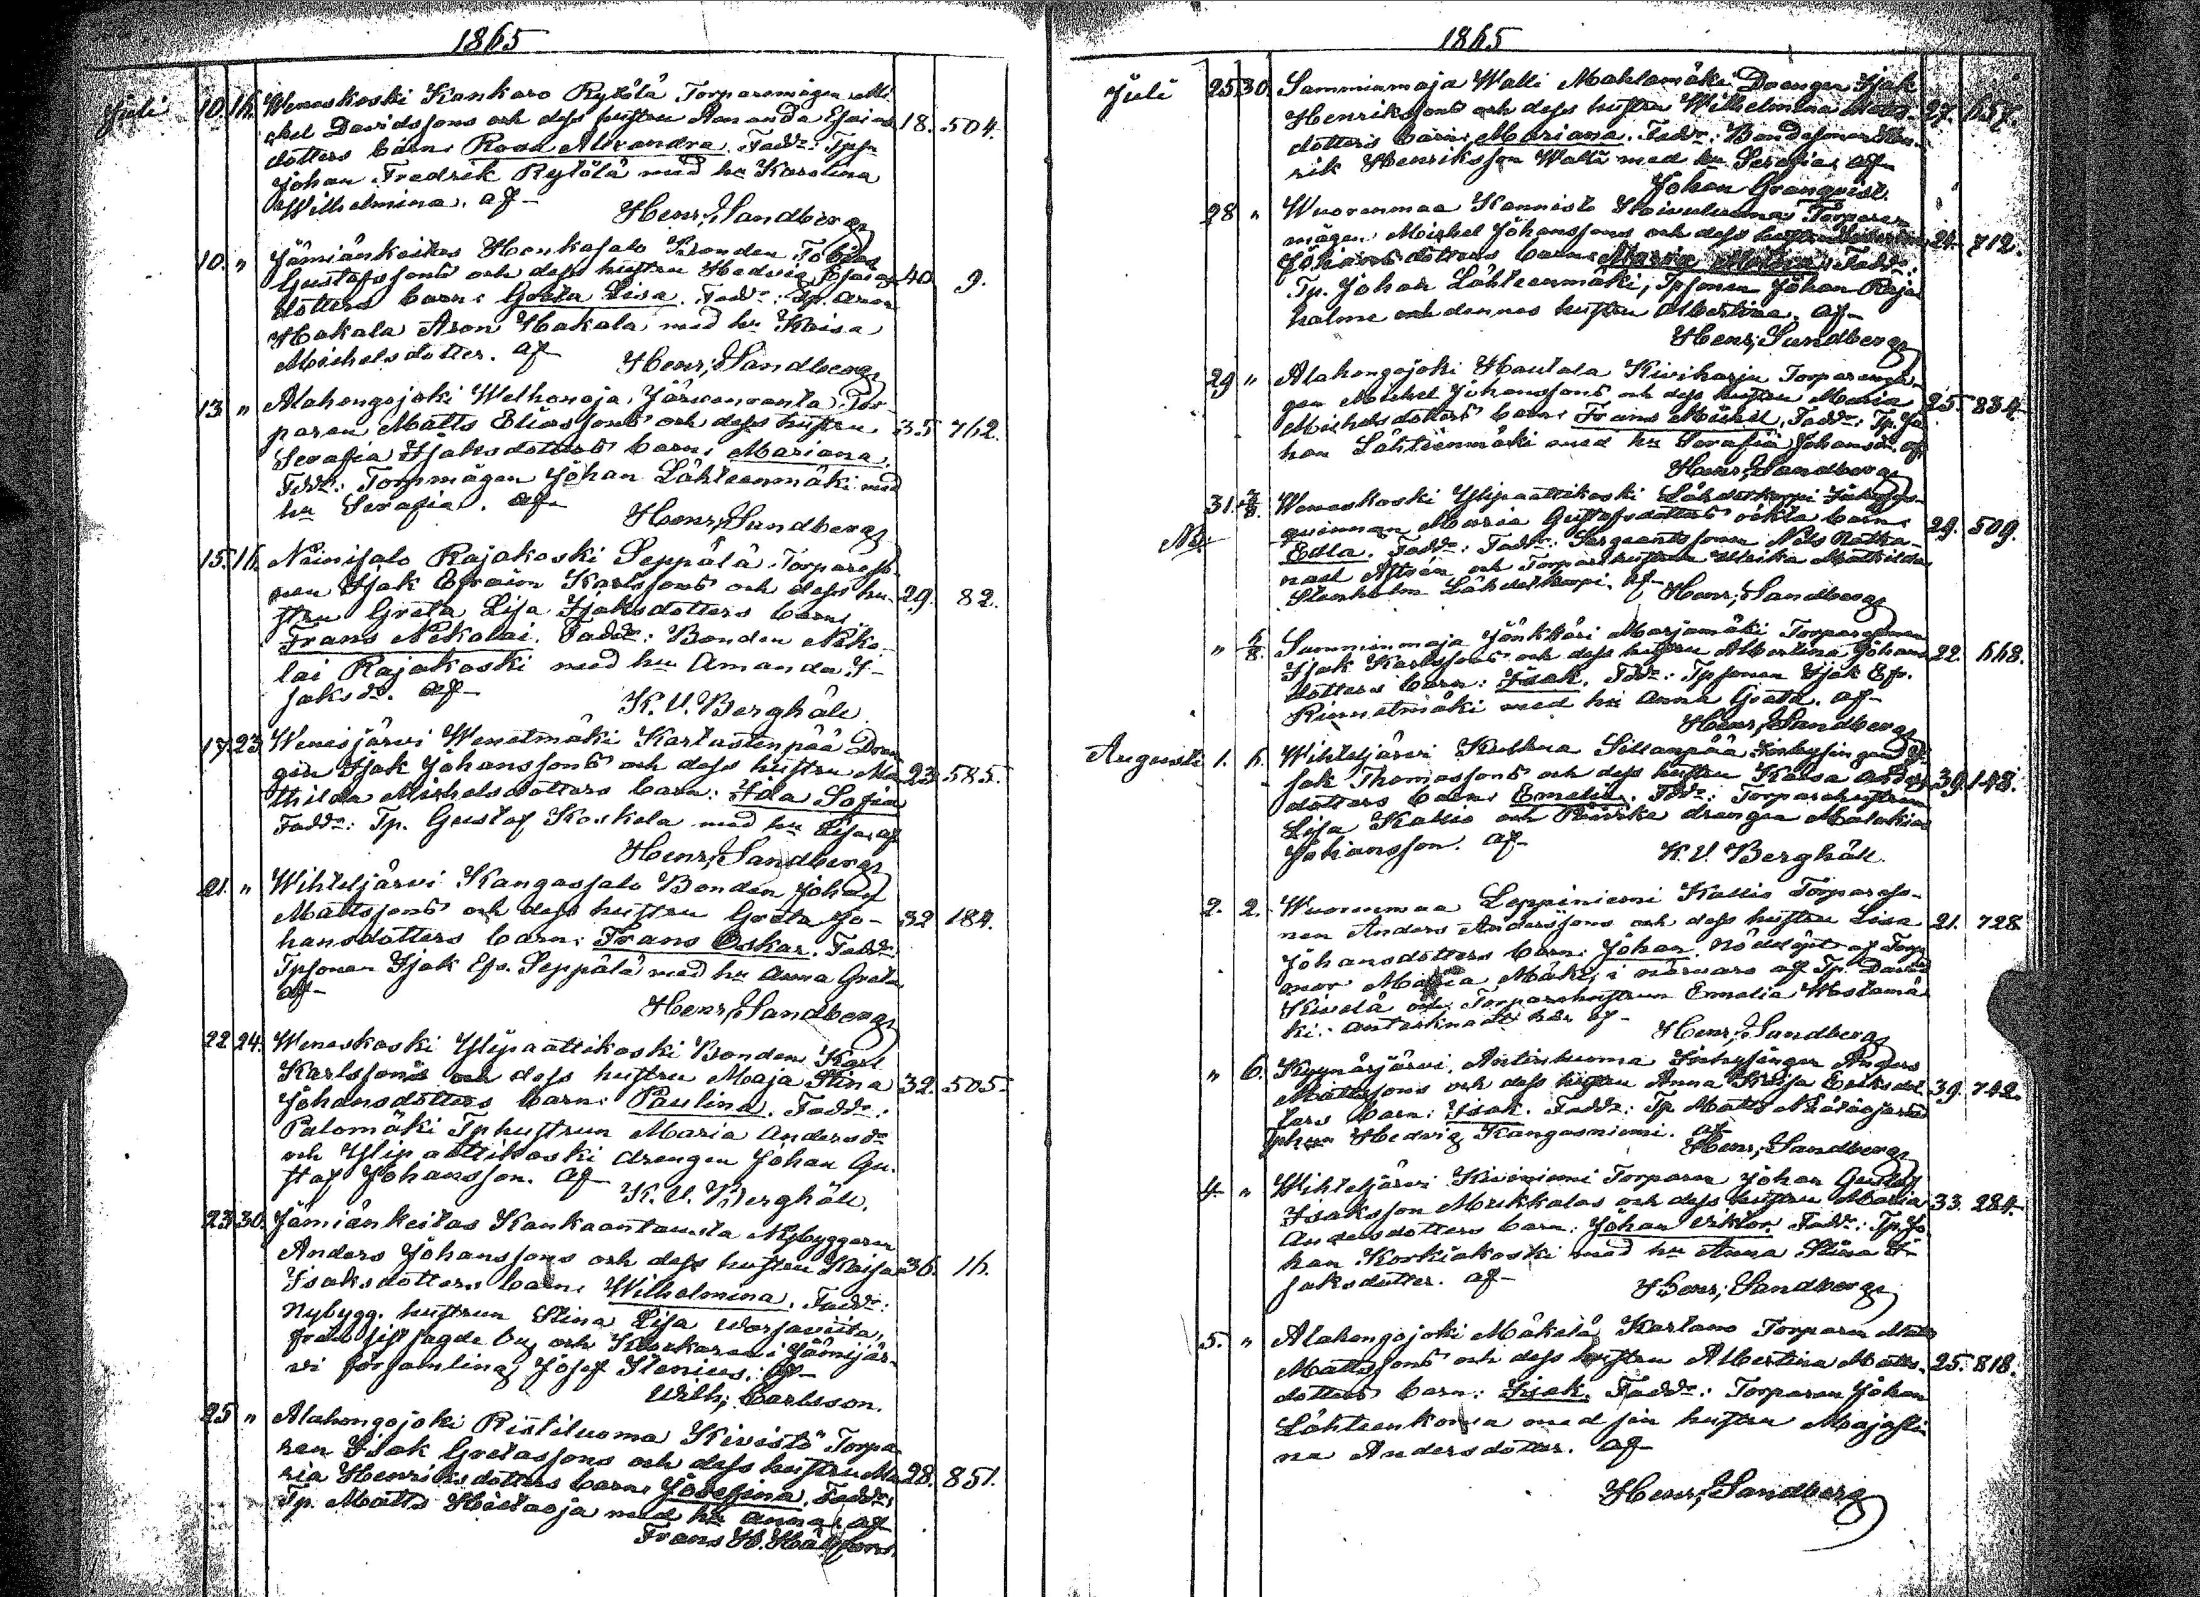 1865
Juli 10. 16. Weneskoski Kankaro Rytölä Torparemågen Mi-
chel Davidssons och dess hustru Amanda Esaias 18. 504.
dotters barn: Rosa Alexandra. Fadd:
Johan Fredrik Rytölä med hu Karolina
Wilhelmina. af
Henr; Sandberg
10. " Jämiänkeitas Honkasalo Bonden Tobias
Gustafssons och dess hustru Hedvig Esaias 40. 9.
dotters barn: Greta Lisa. Fadd: Tp. Aron
Hakala Aron Hakala med hu Kaisa
Michelsdotter. af Henr; Sandberg
13. " Alahongojoki Welhonoja Järvenranta Tor-
paren Matts Eliassons och dess hustru 35 762.
Serafia Isaksdotters barn: Mariana.
Fadd: Torpmågen Johan Lähteenmäki med
hu Serafia. af
Henr; Sandberg
15. 16. Niinisalo Rajakoski Seppälä Torpareso-
nen Isak Efraim Karlssons och dess hu- 29. 82.
stru Greta Lisa Isaksdotters barn:
Frans Nikolai. Fadd: Bonden Niko-
lai Rajakoski med hu Amanda I-
saksd. af
K. V. Berghäll
17. 23. Wenesjärvi Wenetmäki Karlustenpää Dren-
gen Isak Johanssons och dess hustru Ma- 23. 585.
thilda Michelsdotters barn: Ida Sofia
Fadd: Tp. Gustaf Koskela med hu Lisa. af
Henr; Sandberg
21. " Wihteljärvi Kangassalo Bonden Johan
Mattssons och dess hustru Greta Jo- 32 184.
hansdotters barn: Frans Oskar. Fadd:
Tpsonen Isak Efr. Seppälä med hu Anna Greta
af
Henr; Sandberg
22 24. Weneskoski Ylipaattikoski Bonden Karl
Karlssons och dess hustru Maja Stina 32. 505
Johansdotters barn: Paulina. Fadd:
Palomäki Tphustrun Maria Andersdr
och Ylipaattikoski drengen Johan Gu-
staf Johansson. af
K. V. Berghäll.
23 30. Jämiänkeitas Kankaantausta Nybyggaren
Anders Johanssons och dess hustru Kaisa 36. 16.
Isaksdotters barn: Wilhelmina. Fadd:
Nybygg. hustrun Stina Lisa
från sistsagde by och i Jämijär-
vi församling Josef Stenius: af
Wilh; Carlsson.
25 " Alahongojoki Ristiluoma Kivistö Torpa-
ren Isak Gretassons och dess hustru Ma- 28. 851.
ria Henriksdotters barn: Josefina. Fadd:
Tp. Matts Hietaoja med hu Anna. af
Frans H.
1865
Juli 25 30. Samminmaja Walli Mahlamäki Drengen Isak
Henrikssons och dess hustru Wilhelmina 27. 657.
dotters barn: Mariana. Fadd: Bondesonen Hen-
rik Henriksson Walli med hu Serafia. af
Johan Granqvist.
28 " Wuorenmaa Kannisto Torpare
mågen Michel Johanssons och dess hustru 24. 712.
Johansdotters barn: Fadd:
Tp. Johan Lähteenmäki, Tpsonen Johan Raja
halme och dennes hustru Albertina. af
Henr; Sandberg
29 " Alahongojoki Hautala Kiviharju Torparemå-
gen Michel Johanssons och dess hustru Maria 25. 834.
Michelsdotters barn: Frans Michel. Fadd: Tp. Jo-
han Lähteenmäki med hu Serafia Johansd. af
Henr; Sandberg
31. Weneskoski Ylipaattikoski Lähdetkorpi
qvinnan Maria Gustafsdotters oäkta barn: 29. 509.
Edla. Fadd: Fadd: Sergeantsonen Nils
nael och Torparehustrun Ulrika Mathilda
Stenholm Lähdetkorpi. af Henr; Sandberg
" 6/8. Samminmaja Jönkkäri Marjamäki Torparesonen
Isak Karlssons och dess hustru Albertina Johans 22. 668.
dotters barn: Isak. Fadd: Tpsonen Isak Efr.
med hu Anna Greta. af
Henr; Sandberg
Augusti 1. 6. Wihteljärvi Kulkua Sillanpää Inhysingen I-
sak Thomassons och dess hustru Kaisa 39. 148.
dotters barn: Emelia. Fadd: Torparehustrun
Lisa Kallio och drengen Malakias
Johansson. af K. V. Berghäll.
2. 2. Wuorenmaa Leppiniemi Kallio Torpareso-
nen Anders Anderssons och dess hustru Lisa 21. 728.
Johansdotters barn: Johan. Nöddöpt af Torp
mor Maria Mäki, i närvaro af Tp. David
Kivelä och Torparehustrun Emelia Westamä-
ki. Antecknadt här af
Henr; Sandberg
" 6. Kyynärjärvi Antinluoma Inhysingen Anders
Mattssons och dess hustru Anna Kaisa Eriksdot- 39. 742.
ters barn: Isak. Fadd: Tp. Matts
Hedvig Kangasniemi. af
Henr; Sandberg
4. " Wihteljärvi Kiviniemi Torparen Johan Gustaf
Isaksson Mukkalas och dess hustru Maria 33. 284.
Andersdotters barn: Johan Viktor. Fadd: Tp. Jo-
han Korkiakoski med hu Anna Stina I-
saksdotter. af
Henr; Sandberg
5. " Alahongojoki Mäkelä Karlamo Torparen Matts
Mattssons och dess hustru Albertina Matts- 25. 818.
dotters barn: Isak. Fadd: Torparen Johan
Lähteenkorva med sin hustru Majasti-
na Andersdotter. af
Henr; Sandberg